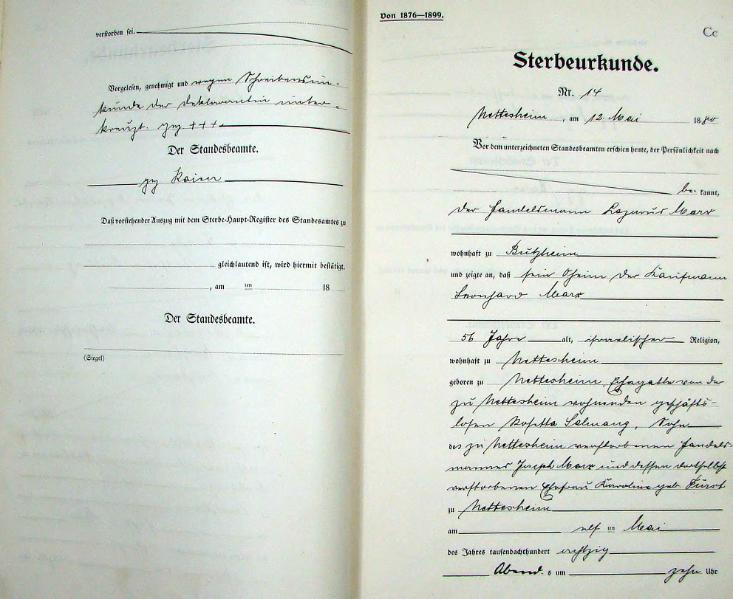 verstorben sei.
Vorgelesen, genehmigt und wegen Schreibensun-
kunde der Deklarantin unter-
kreuzt. gez +++
Der Standesbeamte.
gez Kaiser
Daß vorstehender Auszug mit dem Sterbe-Haupt-Register des Standesamtes zu
gleichlautend ist, wird hiermit bestätigt.
, am ten 18
Der Standesbeamte.
(Siegel)
Von 1876—1899.
Cc
Sterbeurkunde.
Nr. 14
Nettesheim, am 12 Mai 1880
Vor dem unterzeichneten Standesbeamten erschien heute, der Persönlichkeit nach
be- kannt,
der Handelsmann Lazarus Marx
wohnhaft zu Butzheim
und zeigte an, daß sein Oheim der Kaufmann
Leonhard Marx
56 Jahre alt, israelitischer Religion,
wohnhaft zu Nettesheim
geboren zu Nettesheim, Ehegatte von der
zu Nettesheim wohnenden geschäfts-
losen Rosetta Salmang, Sohn
des zu Nettesheim verstorbenen Handels-
mannes Joseph Marx und dessen daselbst
verstorbenen Ehefrau Karoline geb. Fürst
zu Nettesheim
am elf ten Mai
des Jahres tausendachthundert achtzig
Abend s um zehn Uhr